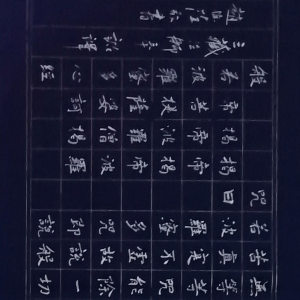 無等等咒能除一切
苦真實不虛故說般
若波羅蜜多咒即說
咒曰
揭帝揭帝波羅
揭帝波羅僧揭
帝菩提薩婆訶
般若波羅蜜多心經
三藏詔譯
書